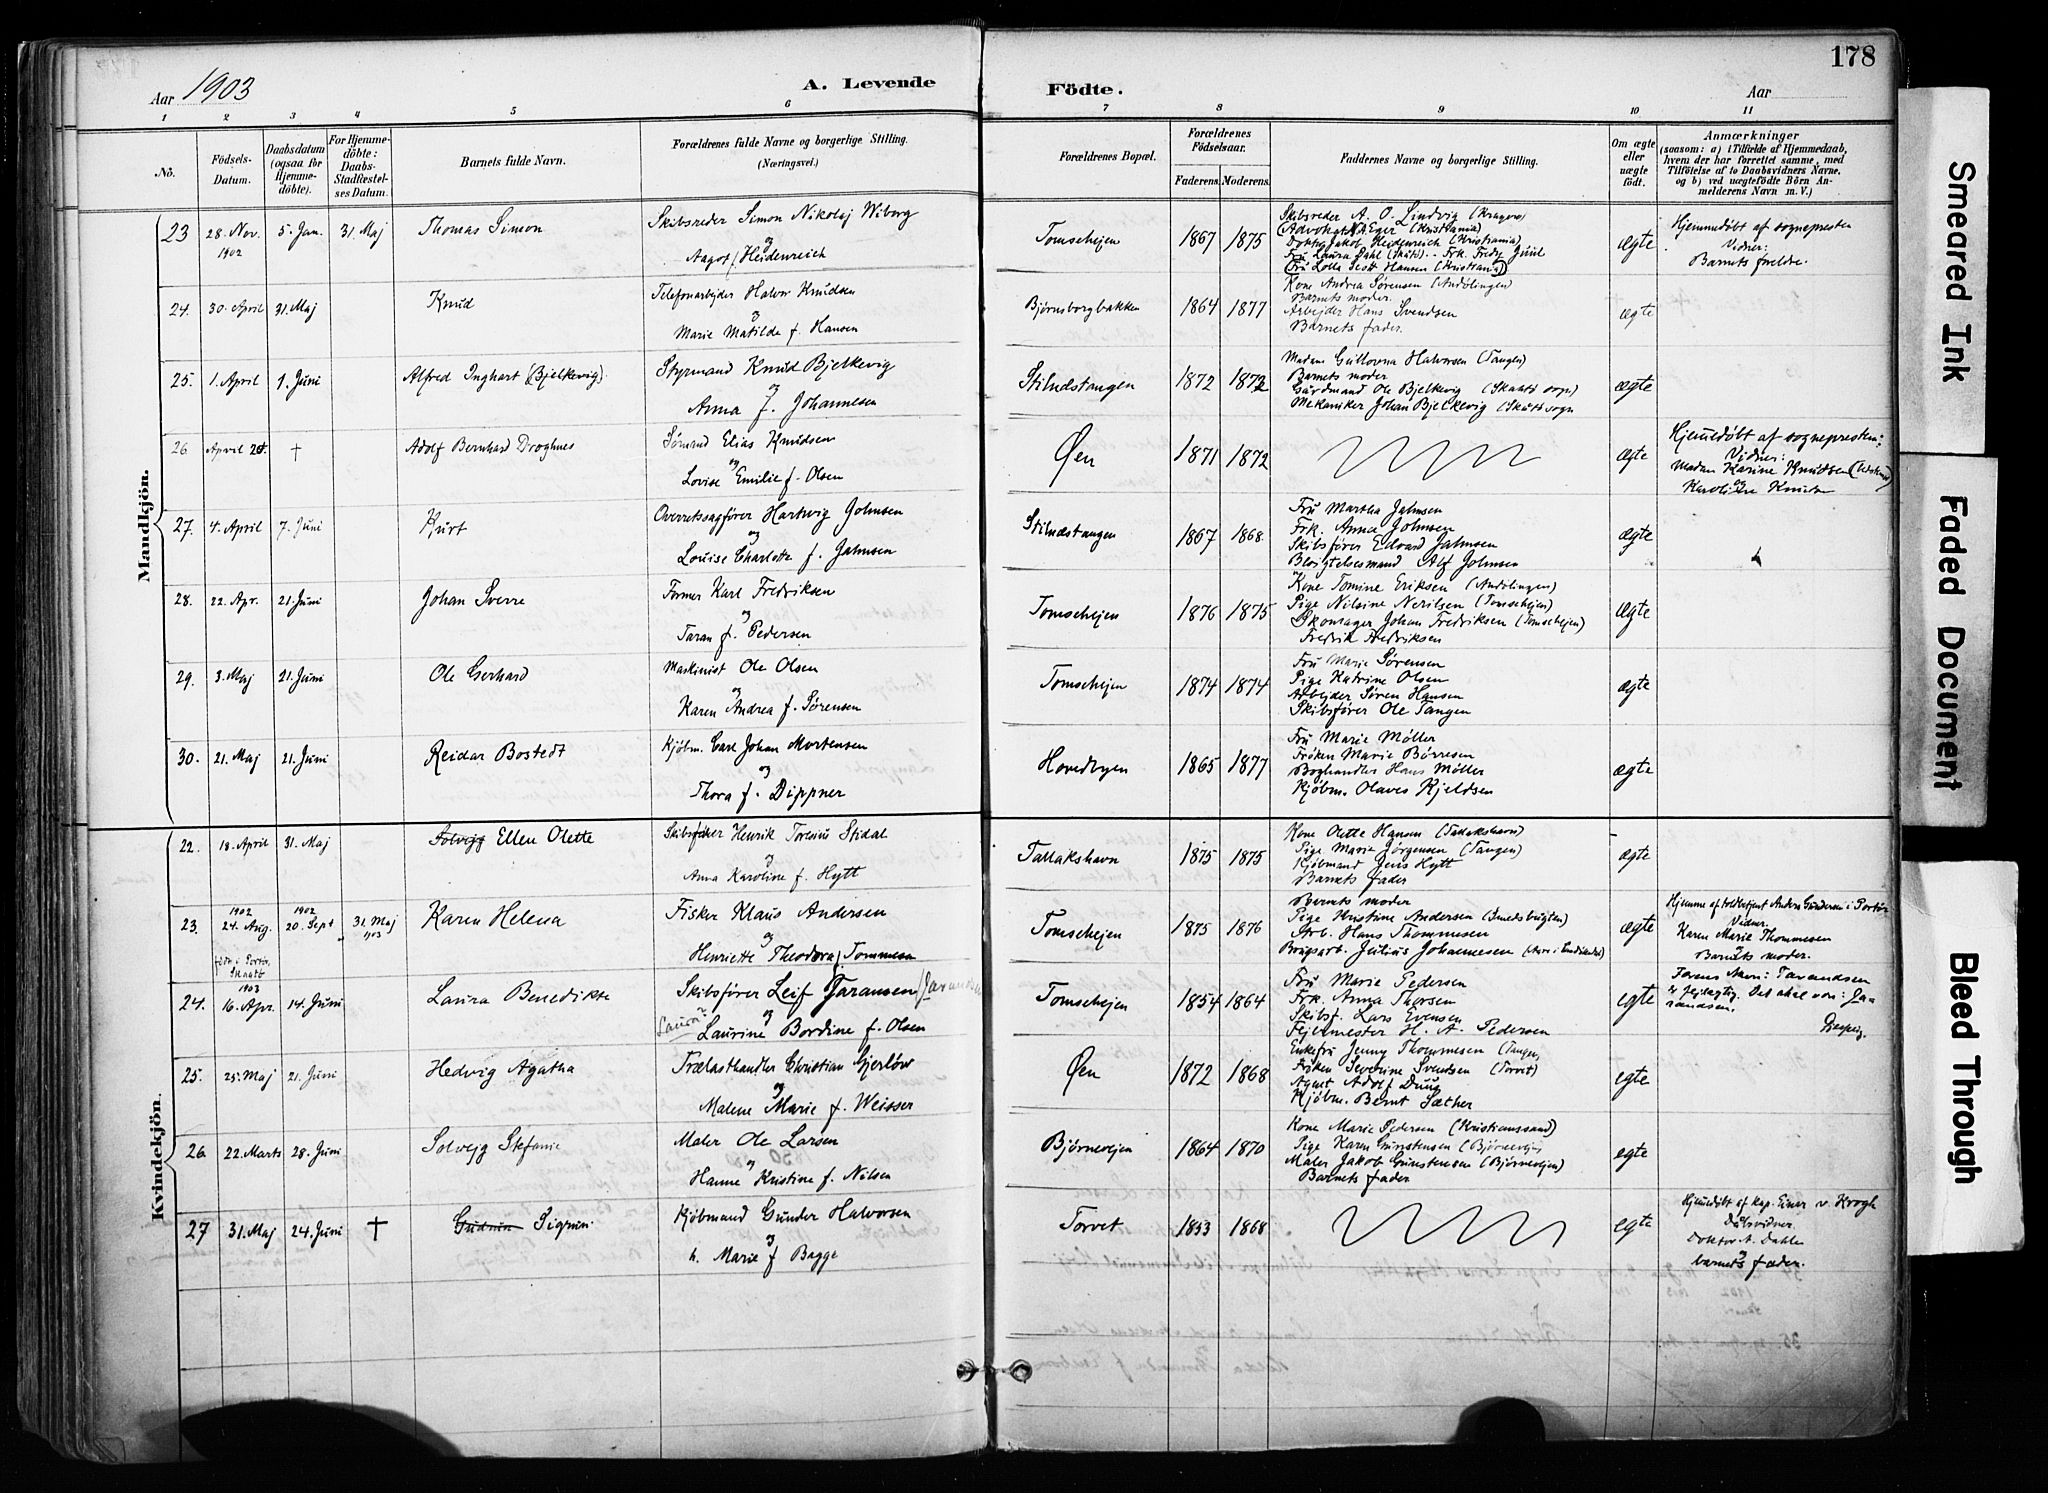 178
Aar 1903
A. Levende
Födte.
Aar
1 2 3 4 5 6 7 8 9 10 11
No.
Födsels-Datum.
Daabsdatum (ogsaa for Hjemme-döbte).
For Hjemme-döbte: Daabs-Stadfæstel-ses Datum.
Barnets fulde Navn.
Forældrenes fulde Navne og borgerlige Stilling. (Næringsvei.)
Forældrenes Bopæl.
Forældrenes Födselsaar.
Faderens. Moderens.
Faddernes Navne og borgerlige Stilling.
Om ægte eller uægte födt.
Anmærkninger
(saasom: a) i Tilfælde af Hjemmedaab, hvem der har forrettet samme, med Tilföielse af to Daabsvidners Navne, og b) ved uægtefödte Börn An-melderens Navn m. V.)
Mandkjön.
23 28. Nov. 1902 5. Jan. 31. Maj Thomas Simon
Skibsreder Simon Nikolaj Wiborg
og
Aagot f. Heidenreich
Tomsehejen 1867 1875
Skibsreder A. O. Lindvig (Kragerø)
Advokat N. A. Eger (Kristiania)
Doktor Jakob Heidenreich (Kristiania)
Fru Laura Dahl (Skåtø) - Frk. Fredr. Juul
Fru Lolla Scott Hansen (Kristiania)
ægte
Hjemmedøbt af sognepresten
Vidner:
Barnets forældre.
24. 30. April 31. Maj Knud
Telefonarbejder Halvor Knudsen
og
Marie Matilde f. Hansen
Bjørnsborgbakken 1864 1877
Kone Andrea Sørensen (Andølingen)
Barnets moder.
Arbejder Hans Svendsen
Barnets fader.
ægte
25. 1. April 1. Juni Alfred Inghart (Bjelkevig)
Styrmand Knud Bjelkevig
og
Anna f. Johannesen
Stilnæstangen 1872 1872
Madam Gullovna Halvorsen (Tangen)
Barnets moder
Gårdmand Ole Bjelkevig (Skaatø sogn)
Mekaniker Johan Bjelkevig (Skåtø sogn
ægte
26 April 20. † Adolf Bernhard Droghnes
Sømand Elias Knudsen
og
Lovise Emilie f. Olsen
Øen 1871 1872
ægte
Hjemedøbt af sognepresten:
Vidner:
Madam Karine Knudsen
og
Karoline Knudsen
27. 4. April 7. Juni Kurt
Overretssagfører Hartvig Johnsen
og
Louise Charlotte f. Jahnsen
Stilnæstangen 1867 1868.
Fru Martha Jahnsen
Frk. Anna Johnsen
Skibsfører Edvard Jahnsen
Bevigtelsesmand Alf Johnsen
ægte
28. 22. Apr. 21. Juni Johan Sverre
Former Karl Fredriksen
og
Taran f. Pedersen
Tomsehejen 1876 1875
Kone Tomine Eriksen (Andølingen)
Pige Nilsine Nerilsen (Tomsehejen)
Skomager Johan Fredriksen (Tomsehejen)
Fredrik Fredriksen
ægte
29. 3. Maj 21. Juni Ole Gerhard
Maskinist Ole Olsen
og
Karen Andrea f. Sørensen
Tomsehejen 1874 1874
Fru Marie Sørensen
Pige Katrine Olsen
Arbejder Søren Hansen
Skibsfører Ole Tangen
ægte
30. 21. Maj 21. Juni Reidar Bostedt
Kjøbm. Carl Johan Mortensen
og
Thora f. Dippner
Hovedbyen 1865 1877
Fru Marie Møller
Frøken Marie Børresen
Boghandler Hans Møller
Kjøbm. Olaves Kjeldsen
ægte
Kvindekjön.
22. 18. April 31. Maj Solvejg Ellen Olette
Skibsfører Henrik Stidal
og
Anna Karoline f. Hytt
Tallakshavn 1875 1875
Kone Olette Hansen (Tallakshavn)
Pige Marie Jørgensen (Tangen)
Kjøbmand Jens Hytt
Barnets fader
ægte
23. 1902 24. Aug. 1902 20. Sept 31. Maj 1903 Karen Helena
Fisker Klaus Andersen
og
Henriette Theodora f. Tommesen
Tomsehejen 1875 1876
Barnets moder
Pige Kristine Andersen
Arb. Hans Thommesen
Julius Johannesen
ægte
Vidner.
Karen Marie Thommesen
og
Barnets moder.
24. 1903 16. Apr. 14. Juni Laura Benedikte
Skibsfører Leif Taransen
og
Laurine Bordine f. Olsen
Tomsehejen 1854 1864
Fru Marie Pedersen
Frk. Anna Thorsen
Skibsf. Lars Evensen
Fejermester H. A. Pedersen
egte
25. 25. Maj 21. Juni Hedvig Agatha
Trælasthandler Christian Gjerløw
og
Malene Marie f. Weisser
Øen 1872 1868
Enkefru Jenny Thommesen (Tangen)
Frøken Severine Svendsen (Torvet)
Agent Adolf Duus
Kjøbm. Bernt Sæther
egte
26. 22. Marts 28. Juni Solvejg Stefanie
Maler Ole Larsen
og
Hanne Kristine f. Nilsen
Bjørnevejen 1864 1870
Kone Marie Pedersen (Kristianssand)
Pige Karen Gunstensen (Bjørnevejen
Maler Jakob Gunstensen (Bjørnevejen)
Barnets fader
egte
27 31. Maj 24. Juni † Gudrun Sigrun.
Kjøbmand Gunder Halvorsen
og
h. Marie f. Bagge
Torvet 1853 1868
egte
Hjemedøbt af kap. Einar v. Krogh
Dåbsvidner.
Doktor A. Dahler
og
barnets fader.
Smeared Ink
Faded Document
Bleed Through